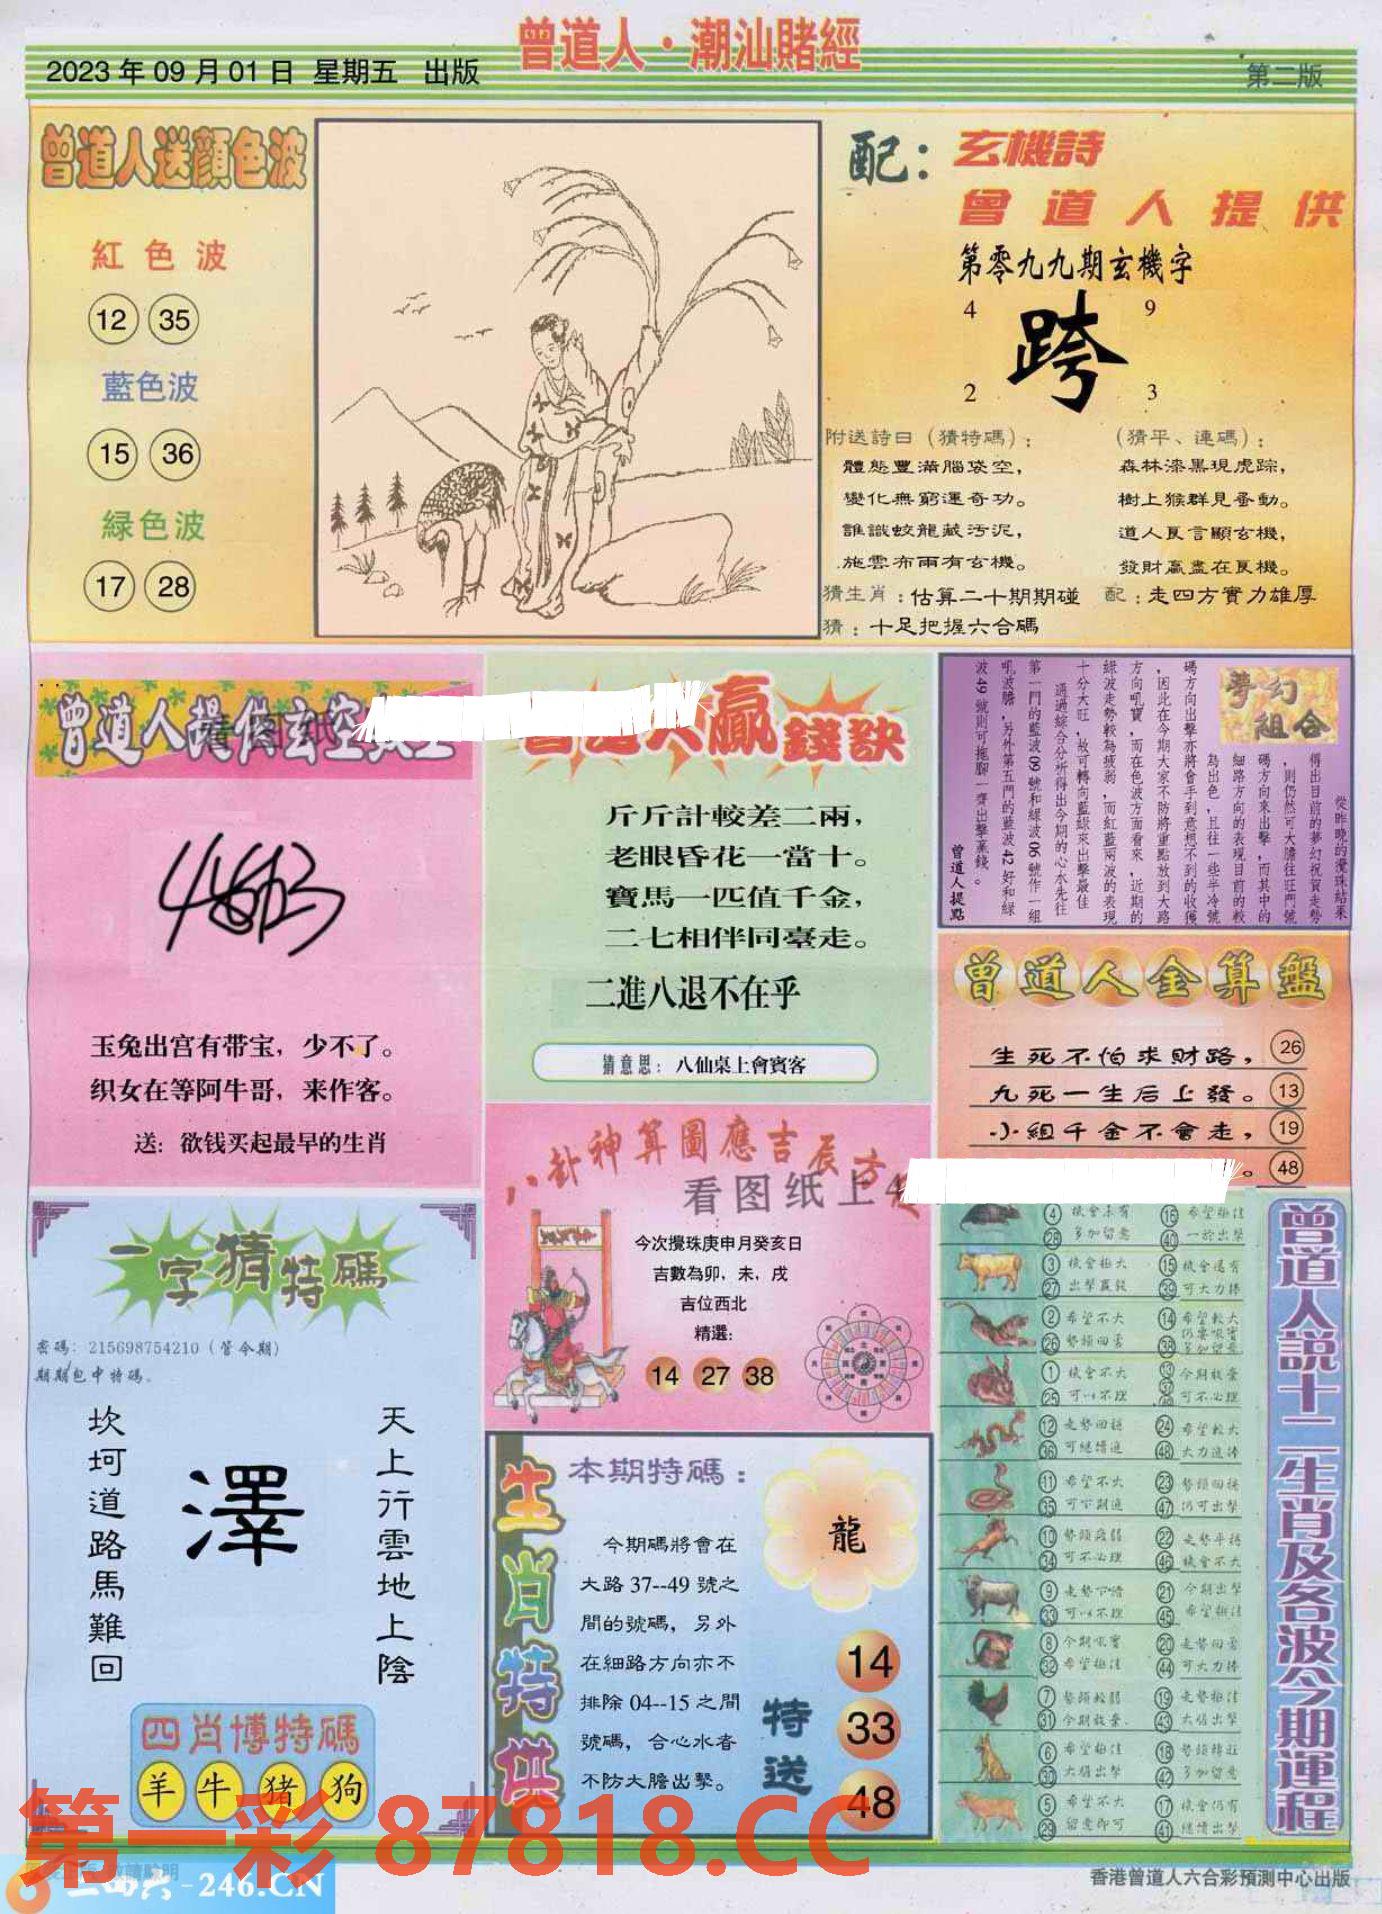 曾道人·潮汕賭經
2023年09月01日 星期五 出版
第二版
曾道人送顔色波
紅色波
12 35
藍色波
15 36
緑色波
17 28
配：玄機詩
曾道人提供
第零九九期玄機字
4 9
跨
2 3
附送詩曰（猜特碼）：
體態豐滿腦袋空，
變化無窮運奇功。
誰識蛟龍藏汚泥，
施雲布雨有玄機。
（猜平、連碼）：
森林漆黑現虎踪，
樹上猴群見蚤動。
道人良言顯玄機，
發財贏盡在良機。
猜生肖：估算二十期期碰 配：走四方實力雄厚
猜：十足把握六合碼
曾道人提供玄空
玉兔出宫有带宝，少不了。
织女在等阿牛哥，来作客。
送：欲钱买起最早的生肖
曾道人贏錢訣
斤斤計較差二兩，
老眼昏花一當十。
寶馬一匹值千金，
二七相伴同臺走。
二進八退不在乎
猜意思：八仙桌上會賓客
夢幻組合
從昨晚的攪珠結果
得出目前的夢幻祝賀走勢
，則仍然可大膽往旺門號
碼方向來出擊，而其中的
細路方向的表現目前的較
為出色，且往一些半冷號
碼方向出擊亦將會手到意想不到的收獲
，因此在今期大家不防將重點放到大路
方向吼寶，而在色波方面看來，近期的
綠波走勢較為疲弱，而紅藍兩波的表現
十分大旺，故可轉向藍綠來出擊最佳
通過綜合分析得出今期的心水先往
第一門的藍波09號和綠波06號作一組
吼波膽，另外第五門的藍波42好和綠
波49號則可拖腳一齊出擊贏錢。
曾道人提點
曾道人金算盤
生死不怕求財路， 26
九死一生后上發。 13
小組千金不會走， 19
。 48
八卦神算圖應吉辰方
看图纸上4
今次攪珠庚申月癸亥日
吉數為卯，未，戌
吉位西北
精選：
14 27 38
一字猜特碼
密碼：215698754210（管今期）
期期包中特碼。
坎坷道路馬難回
澤
天上行雲地上陰
四肖博特碼
羊 牛 猪 狗
生肖特供
本期特碼：
龍
今期碼將會在
大路37--49號之
間的號碼，另外
在細路方向亦不
排除04--15之間
號碼，合心水者
不防大膽出擊。
特送
14
33
48
曾道人説十二生肖及各波今期運程
4 機會未有 16 希望極佳
28 多加留意 40 一於出擊
3 機會極大 15 機會還有
27 出擊贏錢 39 可大力捧
2 希望不大 14 希望較大
26 勢頭回雲 38
1 機會不大 今期放棄
25 可以不理 可不必理
12 走勢回穩 24 希望較大
36 可繼續追 48 大力追捧
11 希望不大 23 勢頭回穩
35 可下期追 47 仍可出擊
10 勢頭疲弱 22 走勢平穩
34 可不必理 46 機會不大
9 走勢下滑 21 今期出擊
33 可以不理 45 希望極佳
8 今期吼寶 20 走勢回雲
32 希望極佳 44 可大力捧
7 勢頭較弱 19 走勢極佳
31 今期放棄 43 大膽出擊
6 希望極佳 18 勢頭轉旺
30 大膽出擊 42 多加留意
5 希望不大 17 機會仍有
29 留意即可 41 繼續出擊
第一彩 87818.CC
二四六-246.CN
香港曾道人六合彩預測中心出版